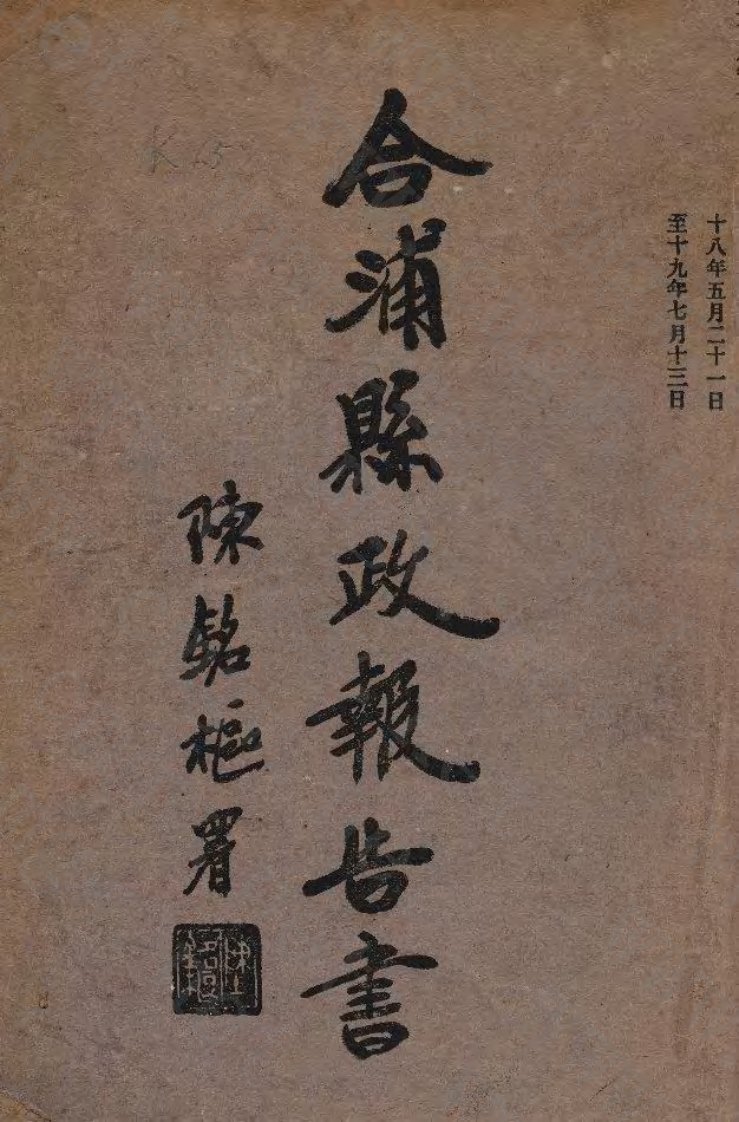 十八年五月二十一日
至十九年七月十三日
合浦縣政報告書
陳銘樞署
K 25